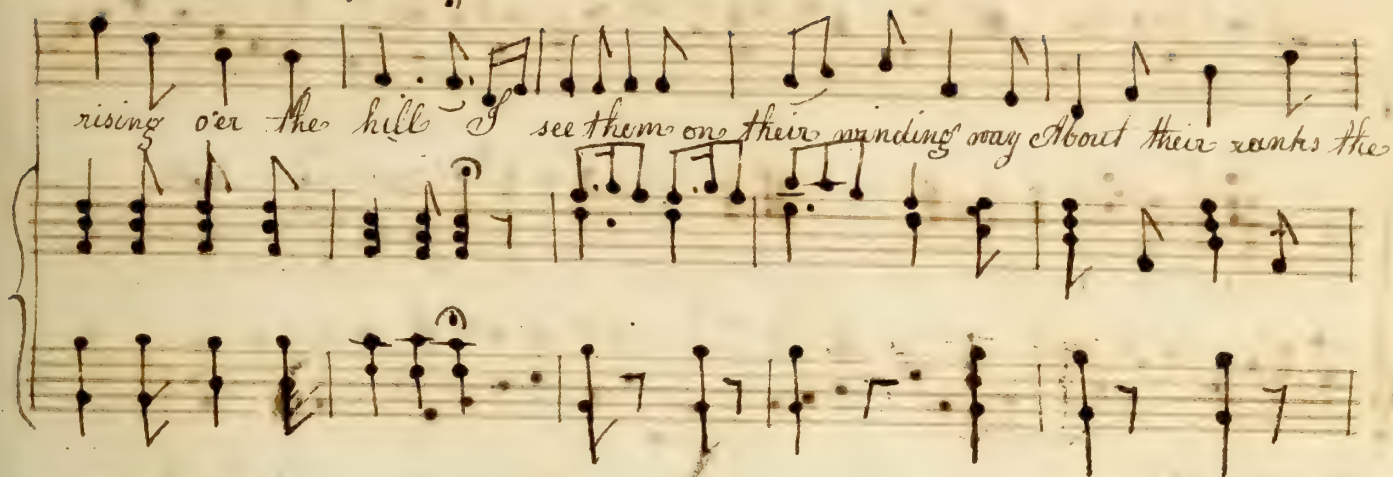 rising o'er the hill I see them on their winding way About their ranks the